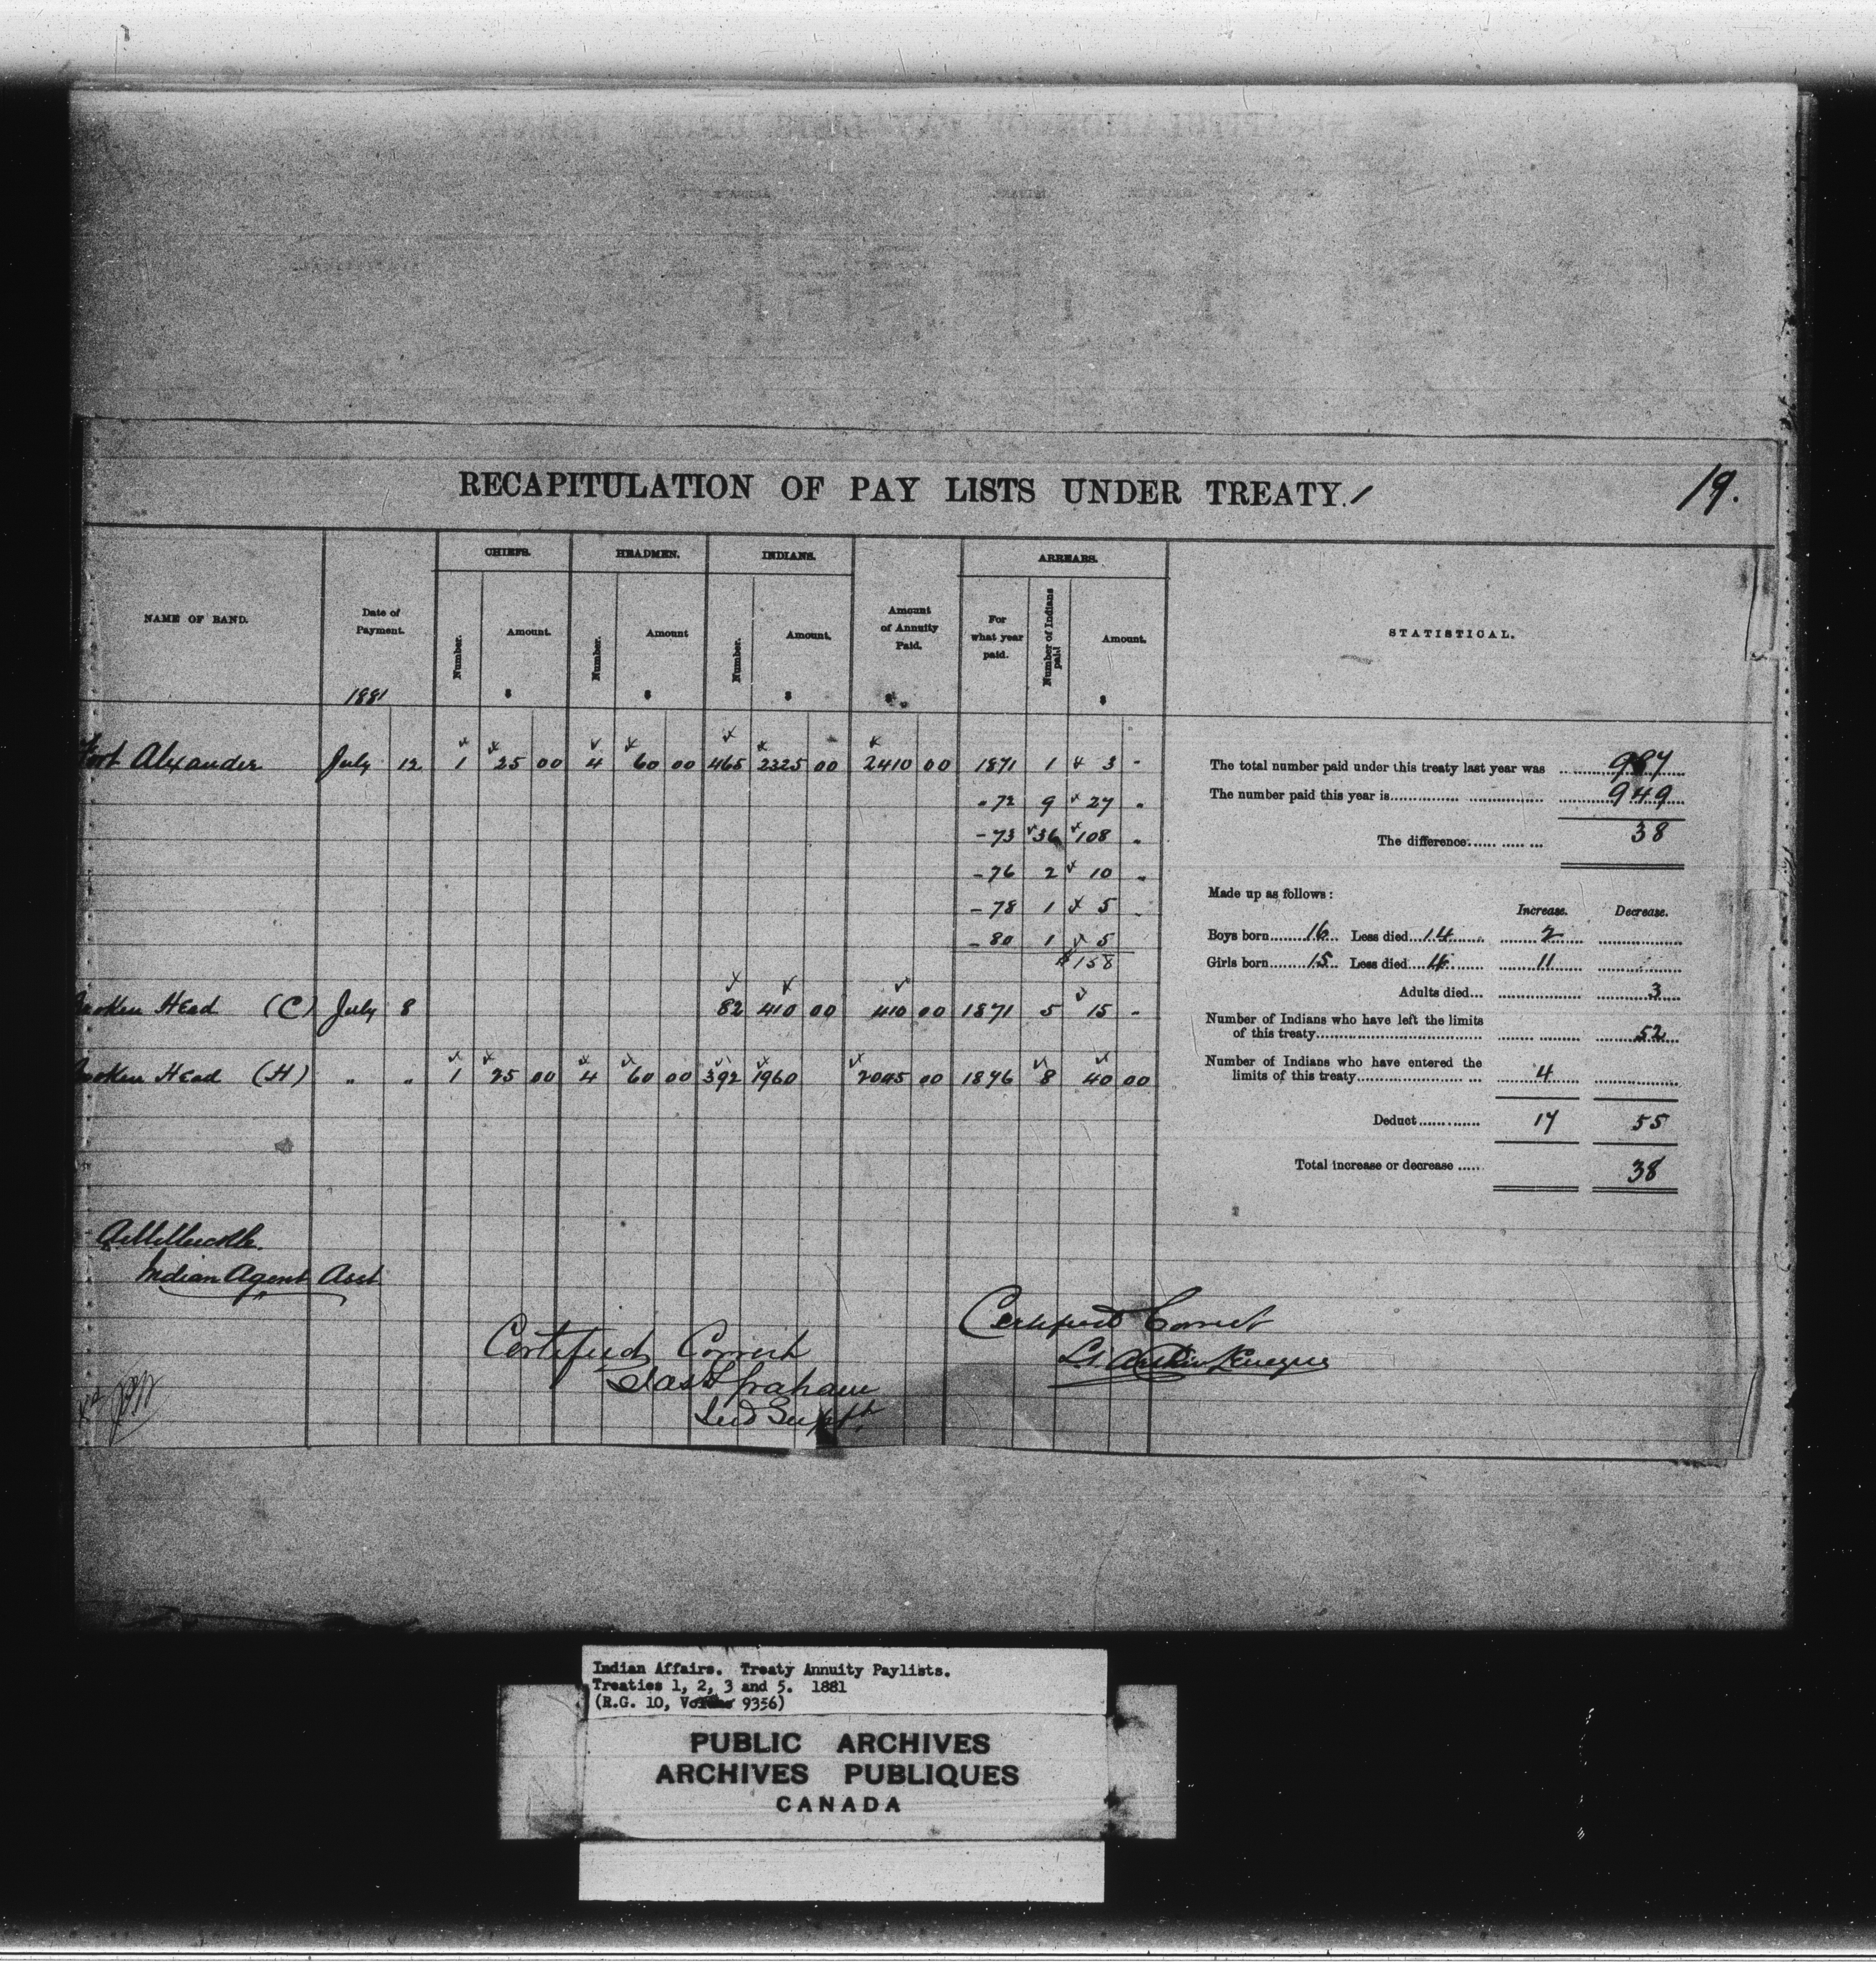 RECAPITULATION OF PAY LISTS UNDER TREATY. 1
19.
NAME OF BAND. Date of Payment. CHIEFS. HEADMEN. INDIANS. Amount of Annuity Paid. ARREARS. STATISTICAL.
Number. Amount. Number. Amount Number. Amount. For what year paid. Number of Indians paid Amount.
1881 $ $ $ $ $
Fort Alexander July 12 1 25 00 4 60 00 465 2325 00 2410 00 1871 1 3 -
-72 9 27 "
-73 36 108 "
-76 2 10 "
-78 1 5
-80 1 5
$158
Broken Head (C) July 8 82 410 00 410 00 1871 5 15 -
Broken Head (H) " " 1 25 00 4 60 00 392 1960 2045 00 1876 8 40 00
The total number paid under this treaty last year was 987
The number paid this year is 949
The difference 38
Made up as follows:
Increase. Decrease.
Boys born 16 Less died 14 2
Girls born 15 Less died 4 11
Adults died 3
Number of Indians who have left the limits
of this treaty 52
Number of Indians who have entered the
limits of this treaty 4
Deduct 17 55
Total increase or decrease 38
Indian Agent Asst
Certified Correct
Jas Graham
Ind Supt.
Certified Correct
Indian Affairs. Treaty Annuity Paylists.
Treaties 1, 2, 3 and 5. 1881
(R.G. 10, Volume 9356)
PUBLIC ARCHIVES
ARCHIVES PUBLIQUES
CANADA